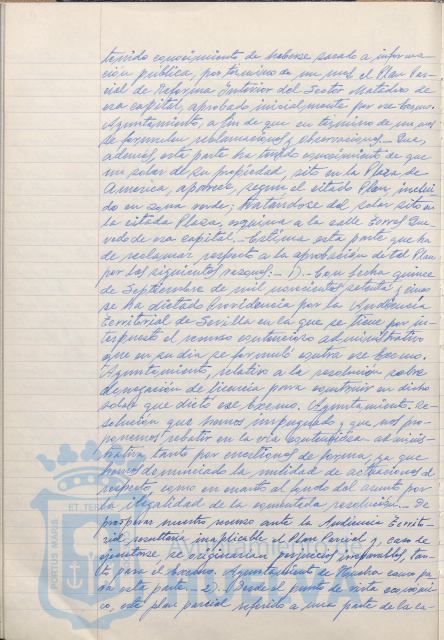 tenido conocimiento de haberse sacado a informa-
ción pública, por término de un mes el Plan Par-
cial de Reforma Interior del Sector Matadero de
esa capital, aprobado inicialmente por ese Excmo.
Ayuntamiento, a fin de que en término de un mes
se formulen reclamaciones y observaciones.- Que,
además, esta parte ha tenido conocimiento de que
un solar de su propiedad, sito en la Plaza de
América, aparece, según el citado Plan, inclui-
do en zona verde; tratándose del solar sito en
la citada Plaza, esquina a la calle Torres Que-
vedo de esa capital.- Estima esta parte que ha
de reclamar respecto a la aprobación de tal Plan
por las siguientes razones:- 1).- Con fecha quince
de Septiembre de mil novecientos setenta y cinco
se ha dictado Providencia por la Audiencia
Territorial de Sevilla en la que se tiene por in-
terpuesto el recurso contencioso administrativo
que en su día se formuló contra ese Excmo.
Ayuntamiento, relativo a la resolución sobre
denegación de licencia para construir en dicho
solar que dictó ese Excmo. Ayuntamiento. Re-
solución que hemos impugnado y que nos pro-
ponemos rebatir en la vía contenciosa-adminis-
trativa, tanto por cuestiones de forma, ya que
hemos denunciado la nulidad de actuaciones al
respecto, como en cuanto al fondo del asunto por
la ilegalidad de la comentada resolución.- De
prosperar nuestro recurso ante la Audiencia Territo-
rial resultaría inaplicable el Plan Parcial y, caso de
ejecutarse se originarían perjuicios irreparables, tan-
to para el Excmo. Ayuntamiento de Huelva como pa-
ra esta parte.- 2).- Desde el punto de vista económi-
co, este plan parcial referido a una parte de la ca-
PORTUS MARIS
ET TERRAE